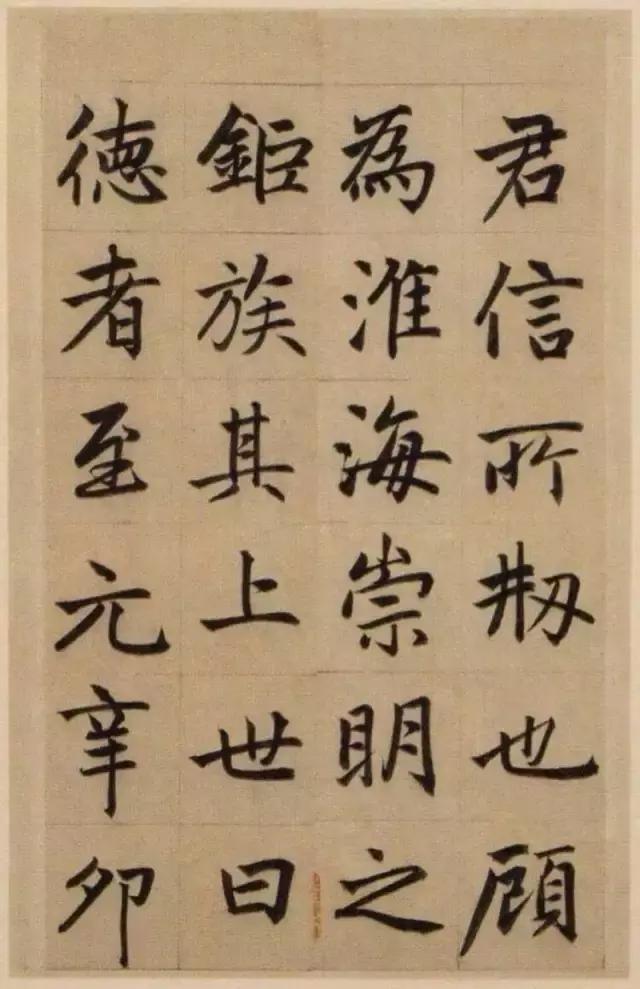 君信所刱也顾
為淮海崇明之
鉅族其上世曰
德者至元辛卯